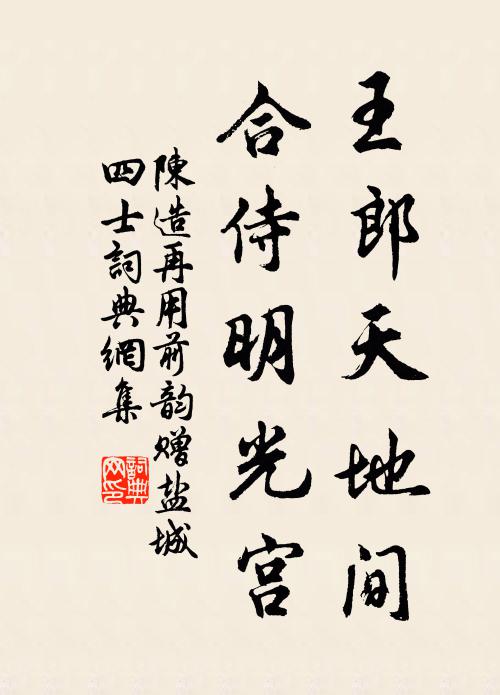 王郎天地间
合侍明光宫
陳造再用前韵赠盐城
四士詞典網集
詞典网印